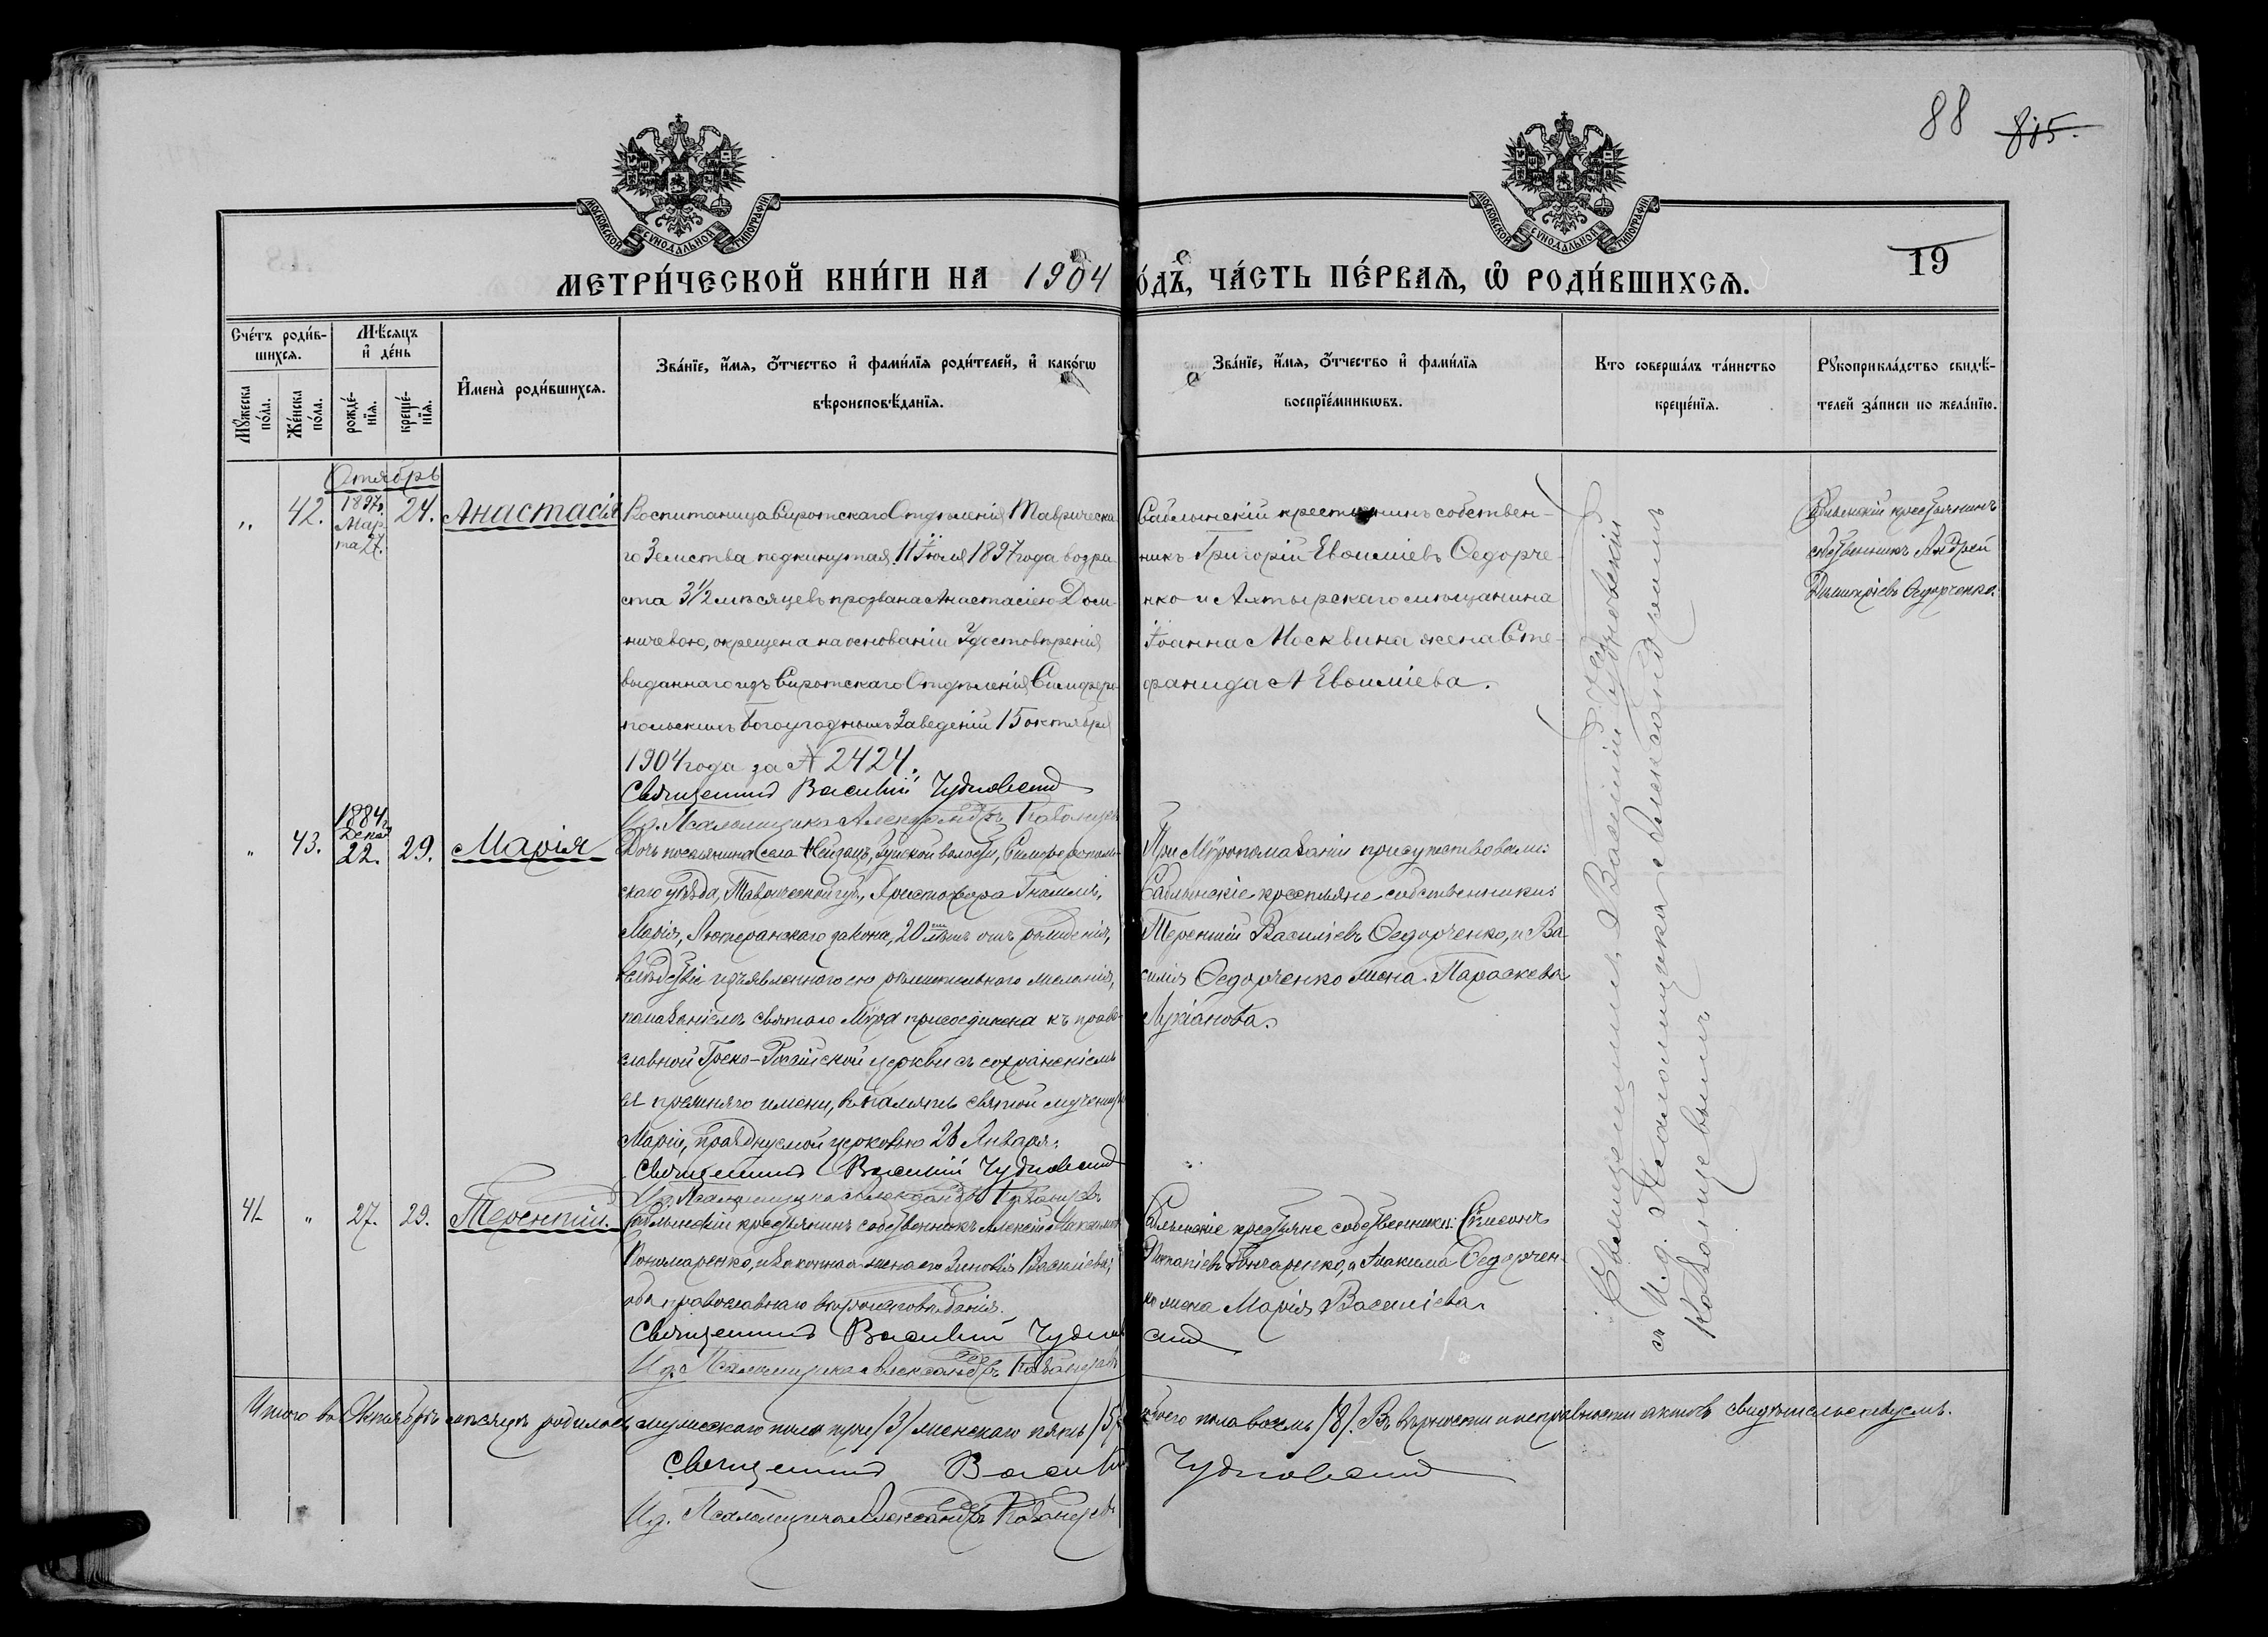 88 815.
МОСКОВСКОЙ СУНОДАЛЬНОЙ ТИПОГРАФІИ
МОСКОВСКОЙ СУНОДАЛЬНОЙ ТИПОГРАФІИ
19
МЕТРИ́ЧЕСКОЙ КНИ́ГИ НА 1904
О́ДЪ, ЧА́СТЬ ПЕ́РВАѦ, Ѽ РОДИ́ВШИХСѦ.
Сче́тъ роди́в-
шихсѧ.
Мѣ́сѧцъ
и҆ де́нь
Мꙋ́жеска
по́ла.
Же́нска
по́ла.
рожде́-
нїѧ.
креще́-
нїѧ.
И҆мена̀ роди́вшихсѧ.
Зва́нїе, и҆́мѧ, ѻ҆́тчество и҆ фами́лїѧ роди́телей, и҆ како́гѡ
вѣроисповѣ́данїѧ.
Зва́нїе, и҆́мѧ, ѻ҆́тчество и҆ фами́лїѧ
воспрїе́мникѡвъ.
Кто соверша́лъ та́инство
креще́нїѧ.
Рꙋкоприкла́дство свидѣ́-
телей за́писи по жела́нїю.
Октябрь
„ 42. 1897г. Мар та 27. 24. Анастасія
Воспитаница Сиротскаго Отдѣленія Таврическа-
го Земства подкинутая 11 Іюля 1897 года возра-
ста 3½ мѣсяцевъ прозвана Анастасіею Дом-
ничевою, окрещена на основаніи Удостовѣренія
выданнаго изъ Сиротскаго Отдѣленія Симферо-
польскимъ Богоугоднымъ Заведеній 15 октября
1904 года за № 2424.
Священникъ Василій Чудновскій
И.д. Псаломщика Александръ Кованцевъ
Саблынскій крестьянинъ собствен-
никъ Григорій Евѳиміевъ Ѳедорче-
нко и Ахтырскаго мѣщанина
Іоанна Москвина жена Сте-
фанида Евѳиміева.
Саблынскій крестьянинъ
собственникъ Андрей
Димитріевъ Ѳедорченко
„ 43. 1884г. Декаб 22. 29. Марія
Дочь поселянина села Нейзацъ, Зуйской волости, Симферополь-
скаго уѣзда, Таврической губ., Христофора
Марія, Лютеранскаго закона, 20 лѣтъ отъ рожденія,
вслѣдствіе изъявленнаго ею рѣшительнаго желанія,
помазаніемъ святаго Мѵра присоединена къ право-
славной Греко-Россійской церкви съ сохраненіемъ
ея прежняго имени, въ память святой мученицы
Маріи, празднуемой церковью 26 Января.
Священникъ Василій Чудновскій
И.д. Псаломщика Александръ Кованцевъ
При Мѵропомазаніи присутствовали:
Саблынскіе крестьяне собственники:
Терентій Василіевъ Ѳедорченко, и Ва-
силія Ѳедорченко жена Параскева
Лукіанова.
Священникъ Василій Чудновскій
съ И.д. Псаломщика Александромъ
Кованцевымъ
41 „ 27. 29. Терентій.
Саблынскій крестьянинъ собственникъ Алексій Максимовъ
Пономаренко, и законная жена его Зиновія Василіева,
оба православнаго вѣроисповѣданія.
Священникъ Василій Чудновскій
И.д. Псаломщика Александръ Кованцевъ
Саблынскіе крестьяне собственники: Симеонъ
Потапіевъ Гончаренко, и Іоакима Ѳедорчен-
ко жена Марія Василіева
Итого въ Октябрѣ мѣсяцѣ родилось мужескаго пола три /3/ женскаго пять /5/ обоего пола восемь /8/. Въ вѣрности и исправности актовъ свидѣтельствуемъ.
Священникъ Василій Чудновскій
И.д. Псаломщика Александръ Кованцевъ